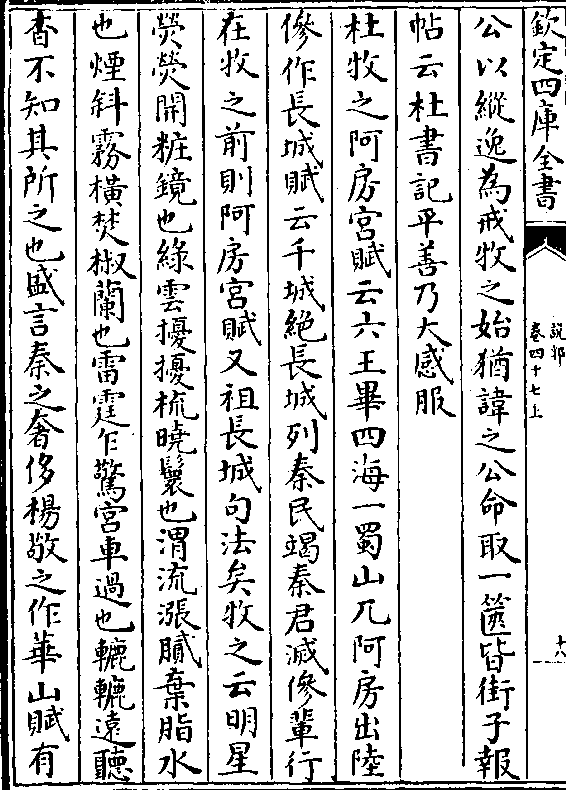 欽定四庫全書
說郛
卷四十七上
十八
公以縱逸為戒牧之始猶諱之公命取一篋皆街子報
帖云杜書記平善乃大感服
杜牧之阿房宮賦云六王畢四海一蜀山兀阿房出陸
傪作長城賦云千城絶長城列秦民竭秦君滅傪輩行
在牧之前則阿房宮賦又祖長城句法矣牧之云明星
熒熒開粧鏡也綠雲擾擾梳曉鬟也渭流漲膩棄脂水
也煙斜霧橫焚椒蘭也雷霆乍驚宮車過也轆轆遠聽
杳不知其所之也盛言秦之奢侈楊敬之作華山賦有